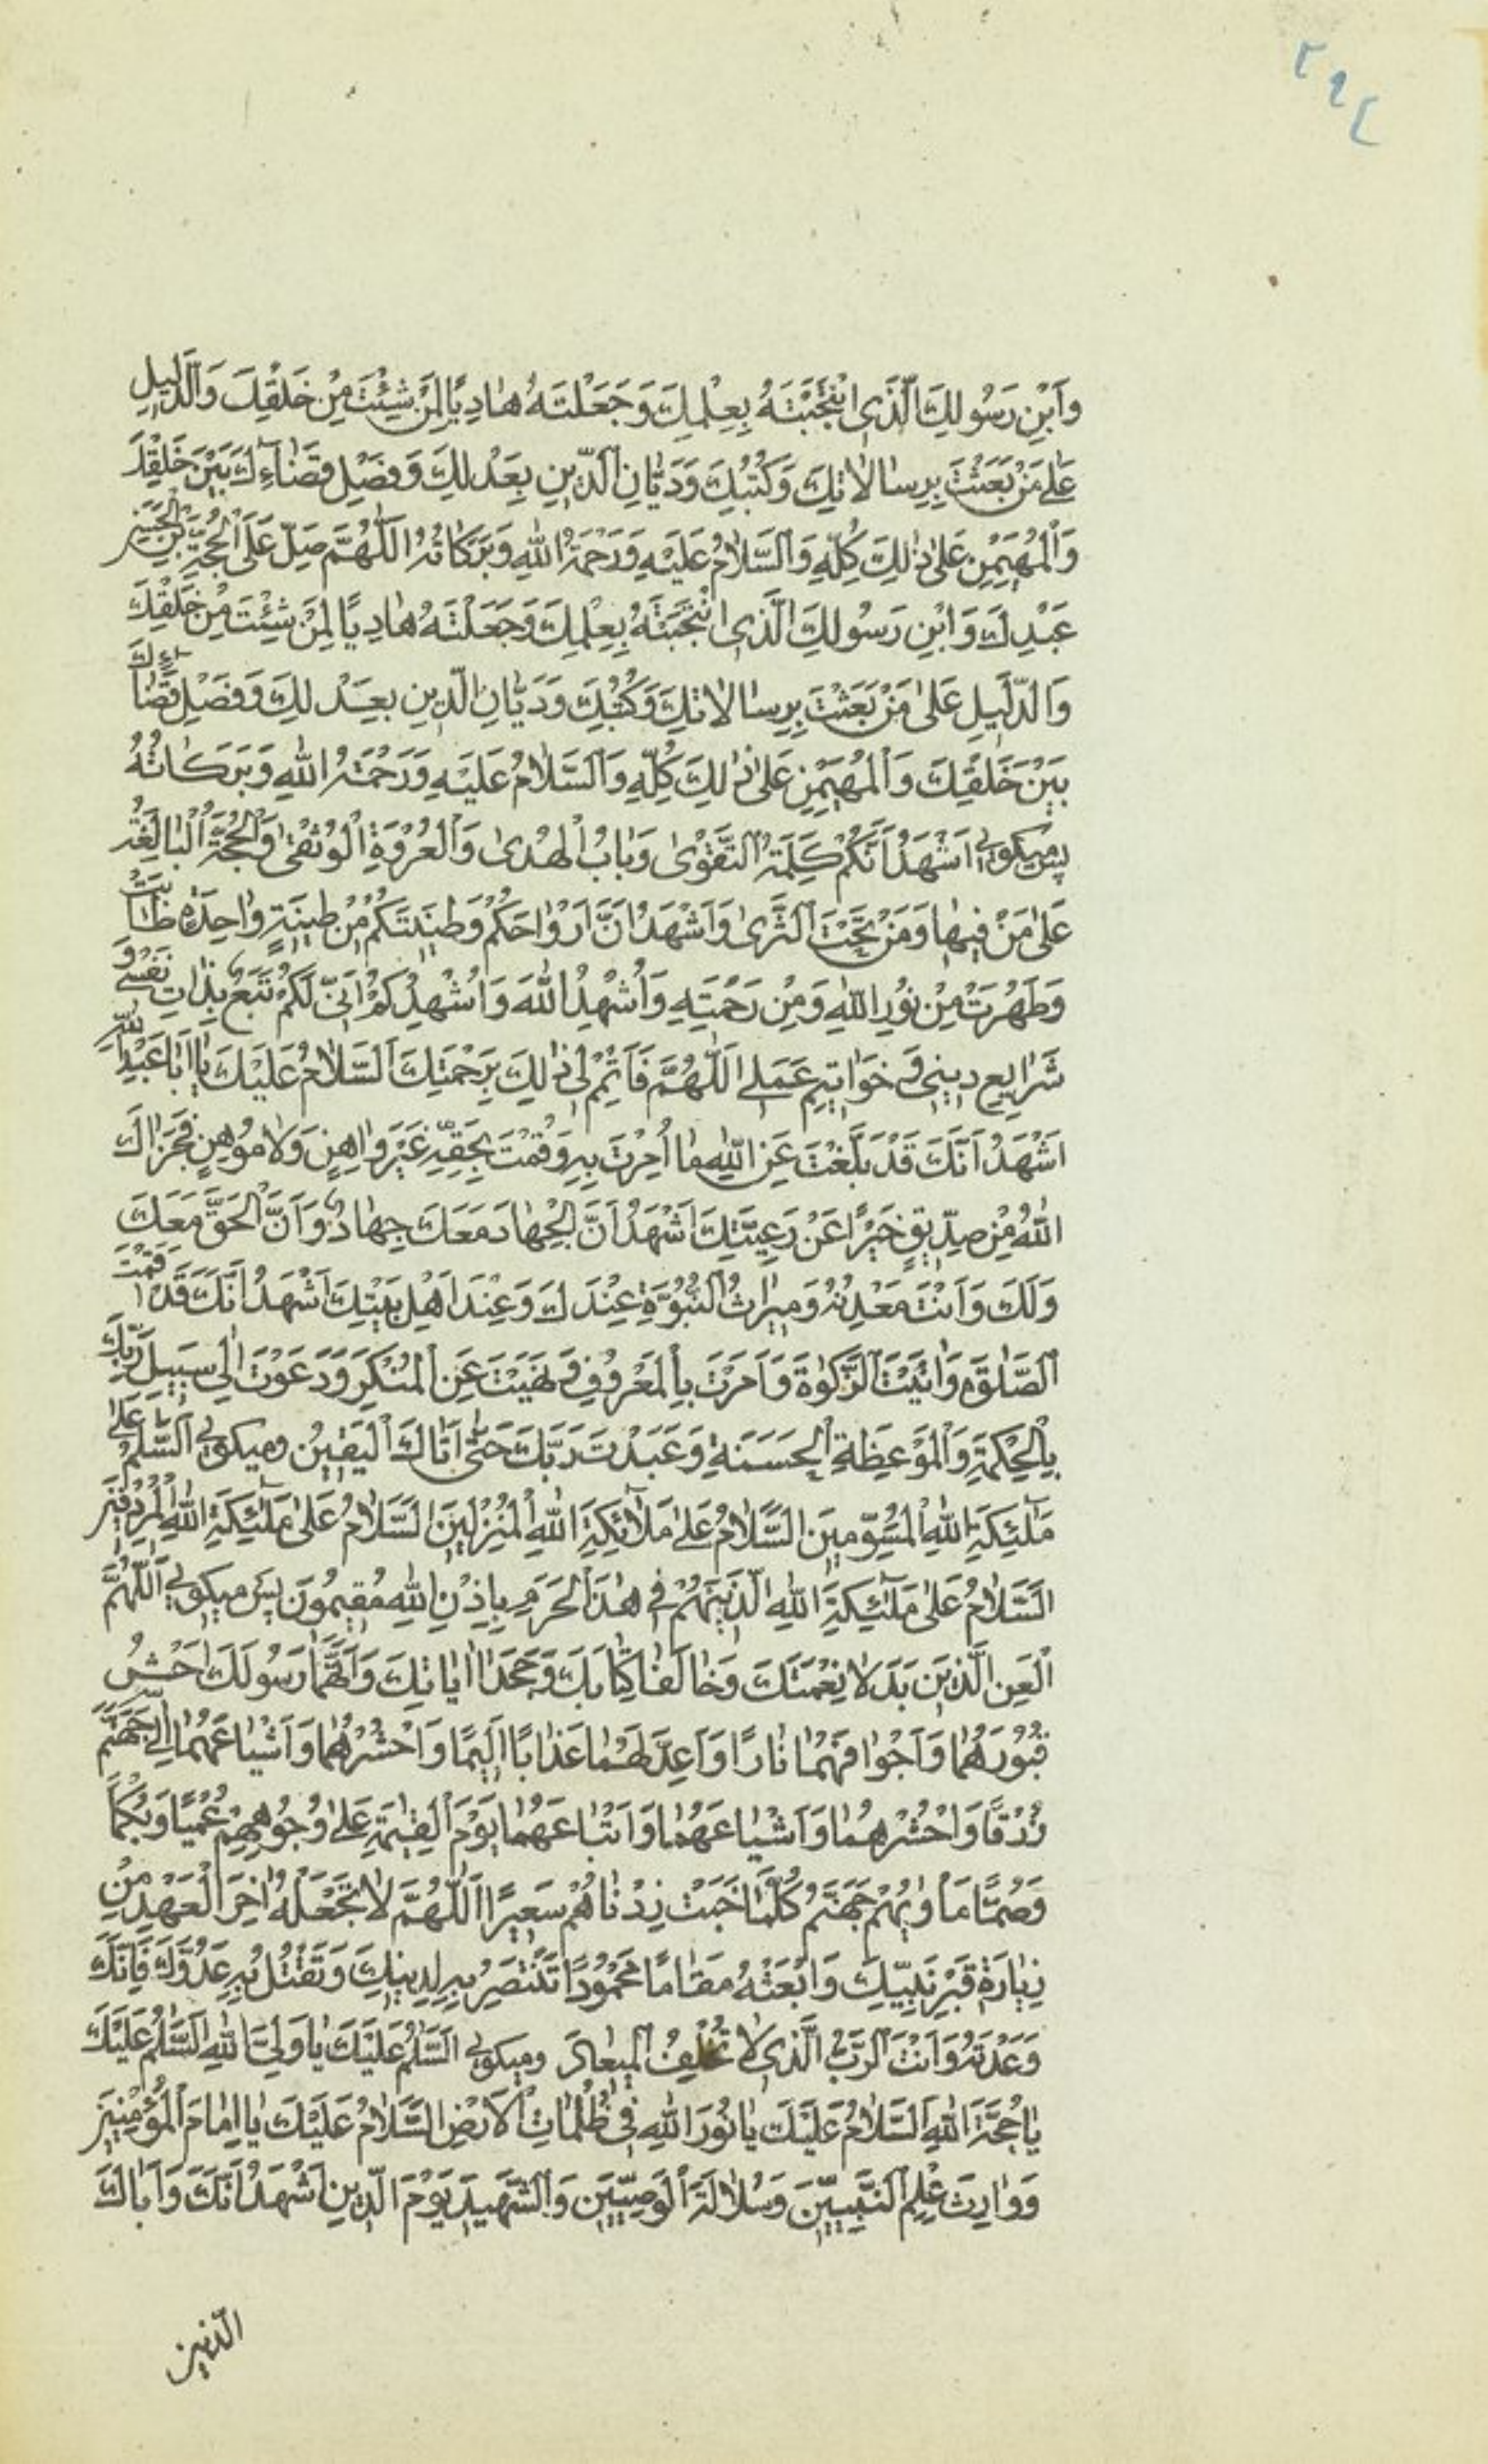 وَابْنِ رَسُولِكَ الَّذِی انْتَجَبْتَهُ بِعِلْمِكَ وَ جَعَلْتَهُ هادِیًا لِمَنْ شِئْتَ مِنْ خَلْقِكَ وَالدَّلِیلِ
عَلی مَنْ بَعَثْتَ بِرِسالاتِكَ وَ كُتُبِكَ وَدَیّانِ الدّینِ بِعَدْلِكَ وَ فَصْلِ قَضاءِكَ بَیْنَ خَلْقِكَ
وَالْمُهَیْمِنِ عَلی ذٰلِكَ كُلِّهِ وَالسَّلامُ عَلَیْهِ وَرَحْمَةُ اللهِ وَبَرَكاتُهُ اللّهُمَّ صَلِّ عَلَی الْحُجَّةِ بْنِ الْحَسَنِ
عَبْدِكَ وَ ابْنِ رَسُولِكَ الَّذِی انْتَجَبْتَهُ بِعِلْمِكَ وَجَعَلْتَهُ هادِیًا لِمَنْ شِئْتَ مِنْ خَلْقِكَ
وَالدَّلِیلِ عَلی مَنْ بَعَثْتَ بِرِسالاتِكَ وَكُتُبِكَ وَدَیّانِ الدّینِ بِعَدْلِكَ وَ فَصْلِ قَضاءِكَ
بَیْنَ خَلْقِكَ وَالْمُهَیْمِنِ عَلی ذٰلِكَ كُلِّهِ وَالسَّلامُ عَلَیْهِ وَرَحْمَةُ اللهِ وَبَرَكاتُهُ
پس میكویی اَشْهَدُ اَنَّكُمْ كَلِمَةُ التَّقْوٰی وَبابُ الْهُدٰی وَالْعُرْوَةُ الْوُثْقٰی وَالْحُجَّةُ الْبالِغَةُ
عَلی مَنْ فِیها وَمَنْ تَحْتَ الثَّرٰی وَاَشْهَدُ اَنَّ اَرْواحَكُمْ وَ طِینَتَكُمْ مِنْ طِینَةٍ واحِدَةٍ طابَتْ
وَطَهُرَتْ مِنْ نُورِ اللهِ وَمِنْ رَحْمَتِهِ وَاُشْهِدُ اللهَ وَاُشْهِدُكُمْ اَنّی لَكُمْ تَبَعٌ بِذاتِ نَفْسی وَ
شَرایِعِ دینی وَ خَواتیمِ عَمَلی اَللّهُمَّ فَاَتْمِمْ لی ذٰلِكَ بِرَحْمَتِكَ اَلسَّلامُ عَلَیْكَ یا اَبا عَبْدِ اللهِ
اَشْهَدُ اَنَّكَ قَدْ بَلَّغْتَ عَنِ اللهِ ما اُمِرْتَ بِهِ وَقُمْتَ بِحَقِّهِ غَیْرَ واهِنٍ وَلا مُوهِنٍ فَجَزاكَ
اللهُ مِنْ صِدّیقٍ خَیْرًا عَنْ رَعِیَّتِكَ اَشْهَدُ اَنَّ الْجِهادَ مَعَكَ جِهادٌ وَ اَنَّ الْحَقَّ مَعَكَ
وَلَكَ وَ اَنْتَ مَعْدِنُهُ وَ میراثُ النُّبُوَّةِ عِنْدَكَ وَ عِنْدَ اَهْلِ بَیْتِكَ اَشْهَدُ اَنَّكَ قَدْ اَقَمْتَ
الصَّلٰوةَ وَاٰتَیْتَ الزَّكٰوةَ وَ اَمَرْتَ بِالْمَعْرُوفِ وَ نَهَیْتَ عَنِ الْمُنْكَرِ وَ دَعَوْتَ اِلی سَبیلِ رَبِّكَ
بِالْحِكْمَةِ وَالْمَوْعِظَةِ الْحَسَنَةِ وَ عَبَدْتَ رَبَّكَ حَتّٰی اَتاكَ الْیَقینُ ومیكویی اَلسَّلٰمُ عَلی
مَلٰئِكَةِ اللهِ الْمُسَوِّمینَ السَّلامُ عَلی مَلائِكَةِ اللهِ الْمُنْزَلینَ السَّلامُ عَلی مَلٰئِكَةِ اللهِ الْمُرْدِفینَ
السَّلامُ عَلی مَلٰئِكَةِ اللهِ الَّذینَهُمْ فی هٰذَا الْحَرَمِ بِاِذْنِ اللهِ مُقیمُونَ پس میكویی اَللّهُمَّ
الْعَنِ الَّذینَ بَدَّلا نِعْمَتَكَ وَخالَفا كِتابَكَ وَجَحَدا ایاتِكَ وَاتَّهَما رَسُولَكَ احْشُ
قُبُورَهُما وَ اَجْوافَهُما نارًا وَ اَعِدَّ لَهُما عَذابًا اَلیمًا وَاحْشُرْهُما وَ اَشْیاعَهُما اِلی جَهَنَّمَ
زُرْقًا وَ احْشُرْهُما وَ اَشْیاعَهُما وَ اَتْباعَهُما یَوْمَ الْقِیٰمَةِ عَلی وُجُوهِهِمْ عُمْیًا وَ بُكْمًا
وَصُمًّا مَأْوٰیهُمْ جَهَنَّمُ كُلَّما خَبَتْ زِدْناهُمْ سَعیرًا اَللّهُمَّ لا تَجْعَلْهُ اٰخِرَ الْعَهْدِ مِنْ
زِیارَةِ قَبْرِ نَبِیِّكَ وَ ابْعَثْهُ مَقامًا مَحْمُودًا تَنْتَصِرُ بِهِ لِدینِكَ وَ تَقْتُلُ بِهِ عَدُوَّكَ فَاِنَّكَ
وَعَدْتَهُ وَ اَنْتَ الرَّبُّ الَّذی لا تُخْلِفُ الْمیعادَ ومیكویی اَلسَّلٰمُ عَلَیْكَ یا وَلِیَّ اللهِ اَلسَّلٰمُ عَلَیْكَ
یا حُجَّةَ اللهِ اَلسَّلامُ عَلَیْكَ یا نُورَ اللهِ فی ظُلُماتِ الْاَرْضِ السَّلامُ عَلَیْكَ یا اِمامَ الْمُؤْمِنینَ
وَ وارِثَ عِلْمِ النَّبِیّینَ وَ سُلالَةَ الْوَصِیّینَ وَ الشَّهیدَ یَوْمَ الدّینِ اَشْهَدُ اَنَّكَ وَ اَباكَ
الّذین